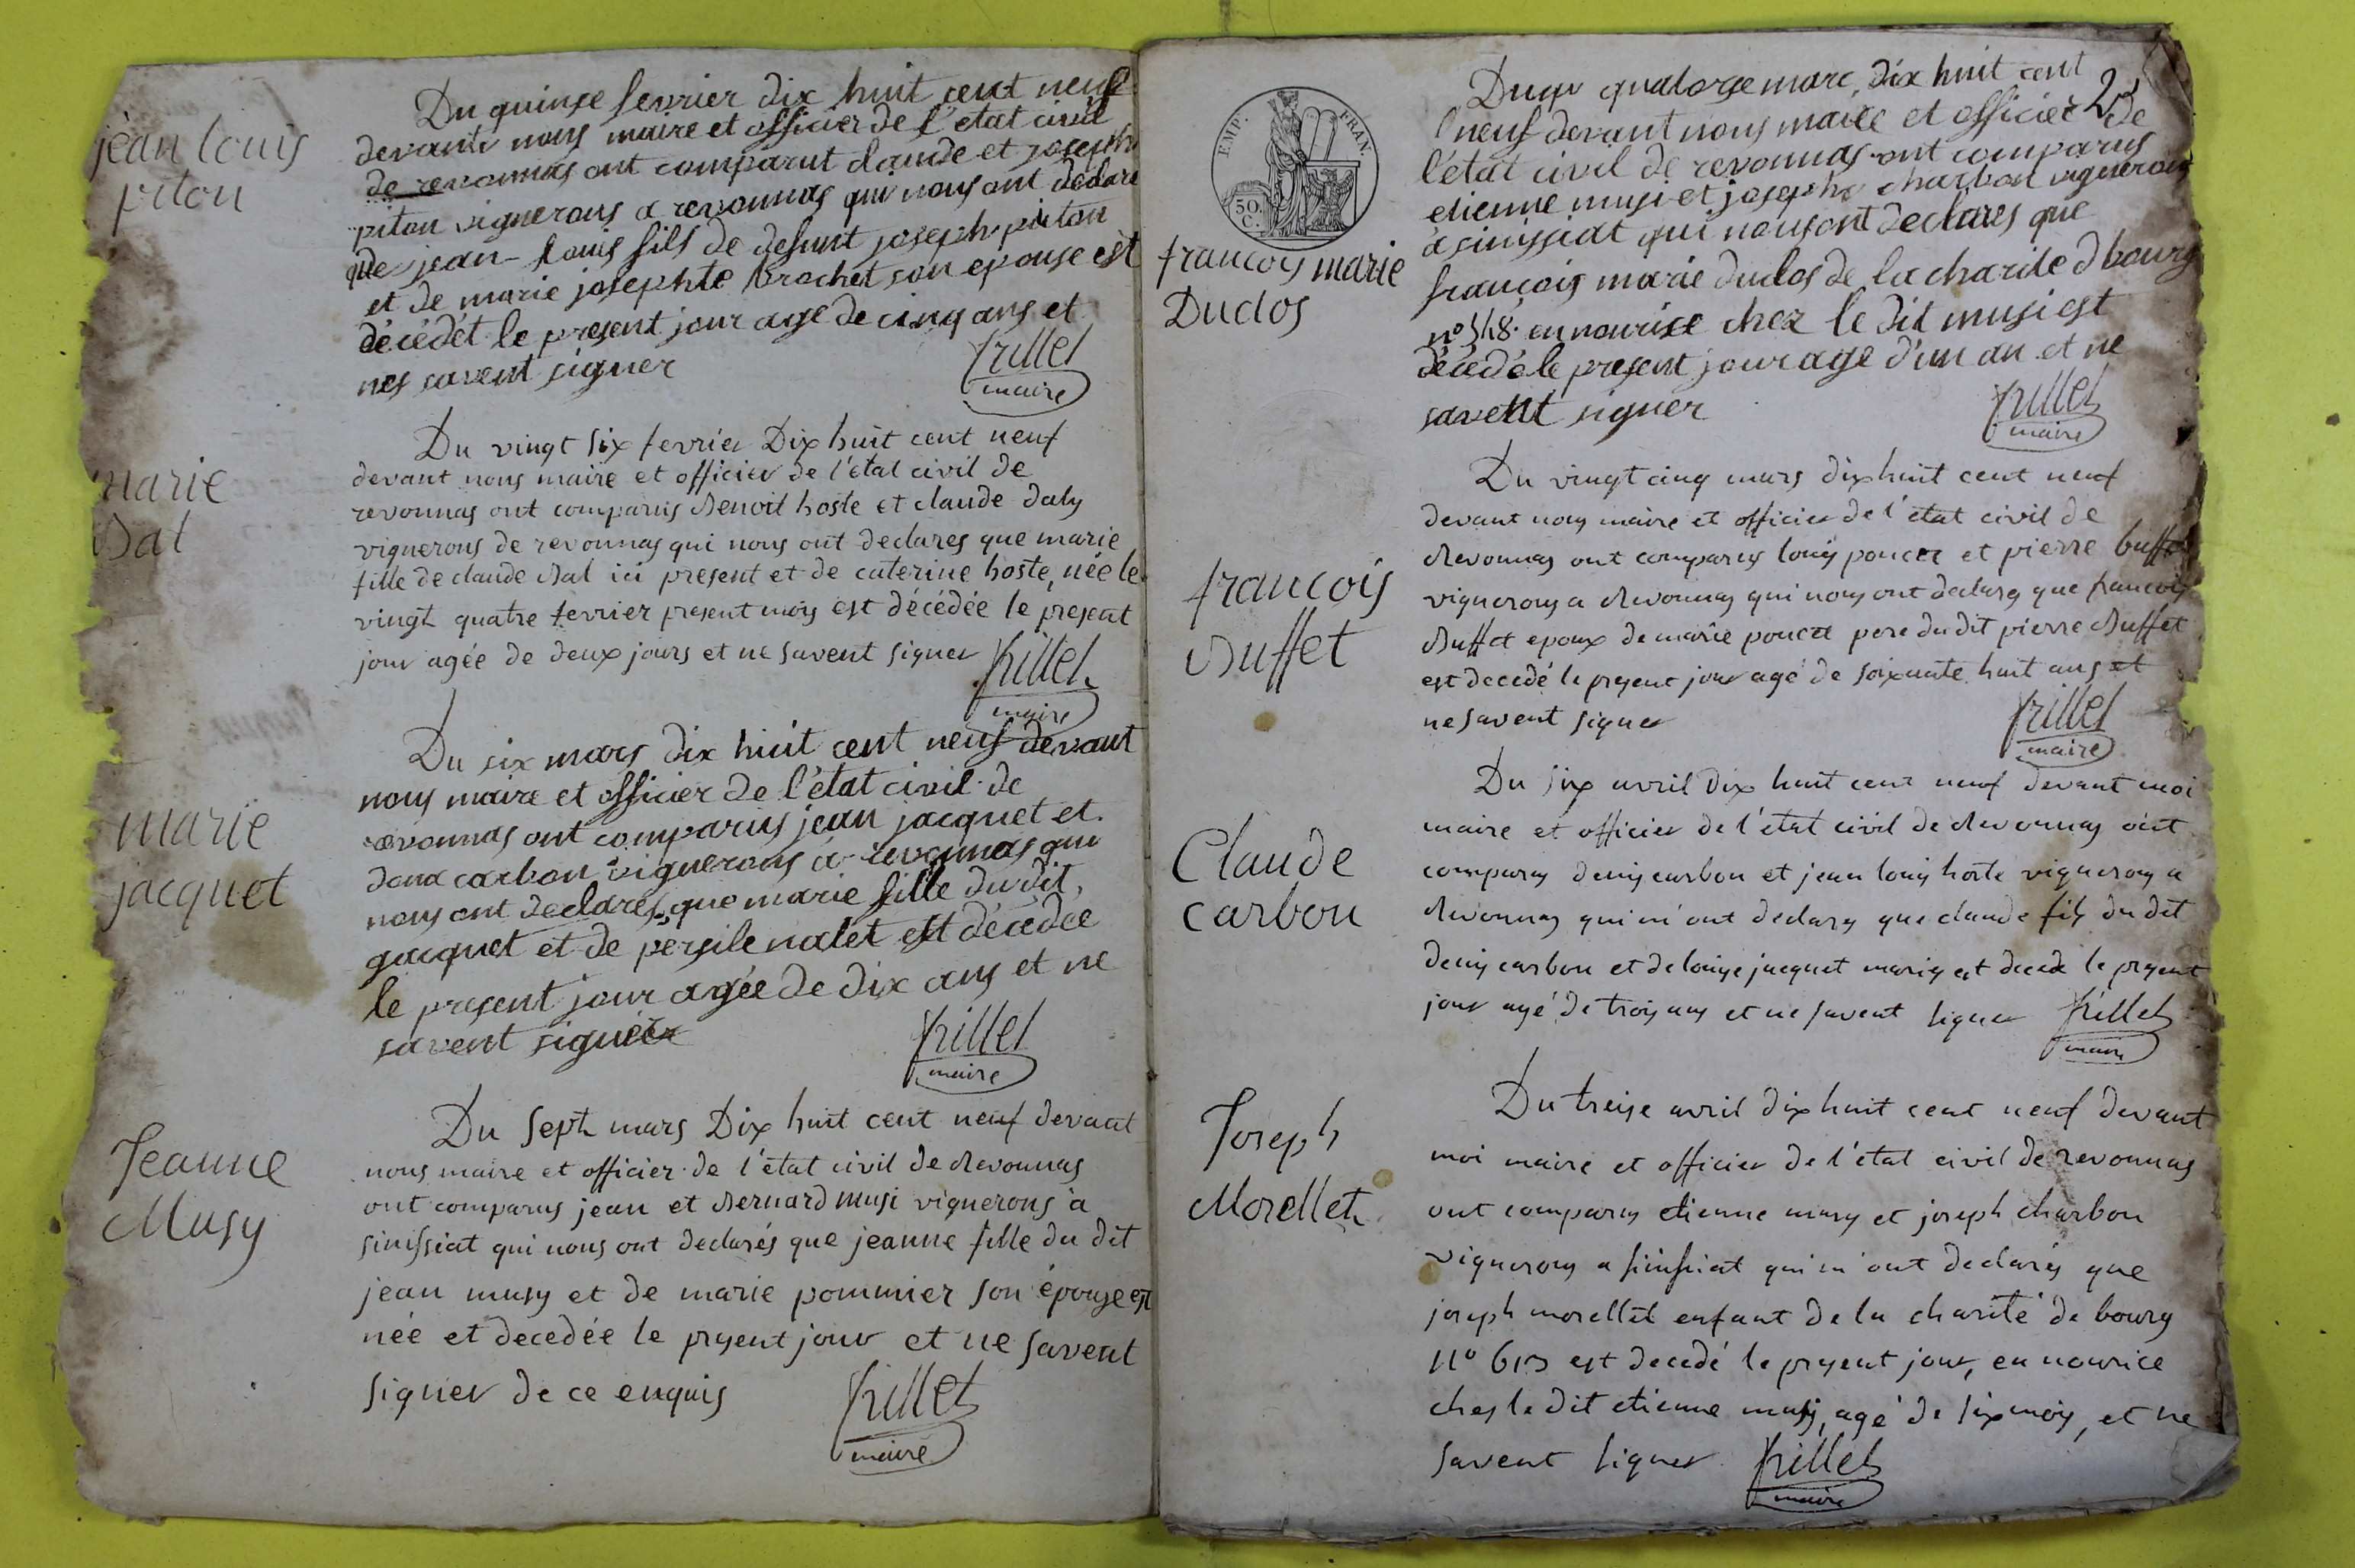 jean louis
piton
Du quinse fevrier dix huit cent neuf
devant nous maire et officier de l'état civil
de revonnas ont comparut claude et joseph
piton vignerons a revonnas qui nous ont déclaré
que jean-louis fils de defunt joseph piton
et de marie josephte brochet son epouse est
décédét le present jour agé de cinq ans et
nes savent signer
frillet
maire
marie
Dal
Du vingt six fevrier Dix huit cent neuf
devant nous maire et officier de l'état civil de
revonnas ont comparus Benoit hoste et claude daly
vignerons de revonnas qui nous ont declares que marie
fille de claude Dal ici present et de caterine hoste, née le
vingt quatre fevrier present mois est décédée le present
jour agée de deux jours et ne savent signer
frillet
maire
marie
jacquet
Du six mars dix huit cent neuf devant
nous maire et officier de l'état civil de
revonnas ont comparus jean jacquet et
carbon vignerons a revonnas qui
nous ont declarés que marie fille du dit
jacquet et de persile nalet est décédée
le present jour agée de dix ans et ne
savent signer
frillet
maire
Jeanne
Musy
Du Sept mars Dix huit cent neuf devant
nous maire et officier de l'état civil de Revonnas
ont comparus jean et Bernard musi vignerons à
sinissiat qui nous ont declarés que jeanne fille du dit
jean musy et de marie pommier son épouse est
née et decedée le present jour et ne savent
signer de ce enquis
frillet
maire
EMP. FRAN.
50. C.
francois marie
Duclos
quatorze marc, dix huit cent
neuf devant nous maire et officier de
l'état civil de revonnas ont comparus
etienne musi et joseph charbon vignerons
a sinissiat qui nous ont declares que
françois marie duclos de la charite d bourg
en nourise chez le dit musi est
décédé le present jour age d'un an et ne
savent signer
frillet
maire
francois
Buffet
Du vingt cinq mars dix huit cent neuf
devant nous maire et officier de l'état civil de
Revonnas ont comparus louis poncet et pierre buffet
vignerons a Revonnas qui nous ont declares que francois
Buffet epoux de marie poncet pere du dit pierre Buffet
est decedé le present jour agé de soixante huit ans et
ne savent signer
frillet
maire
Claude
carbon
Du six avril Dix huit cent neuf devant moi
maire et officier de l'état civil de Revonnas ont
comparus denis carbon et jean louis hoste vignerons a
Revonnas qui m'ont declares que claude fils du dit
denis carbon et de louise jacquet maries est decede le present
jour agé de trois ans et ne savent signer
frillet
maire
Joseph
Morellet
Du treise avril dix huit cent neuf devant
moi maire et officier de l'état civil de revonnas
ont comparus etienne musy et joseph charbon
vignerons a sinissiat qui m'ont declarés que
joseph morellet enfant de la charité de bourg
est decedé le present jour, en nourice
ches le dit etienne musy, agé de six mois, et ne
savent signer
frillet
maire